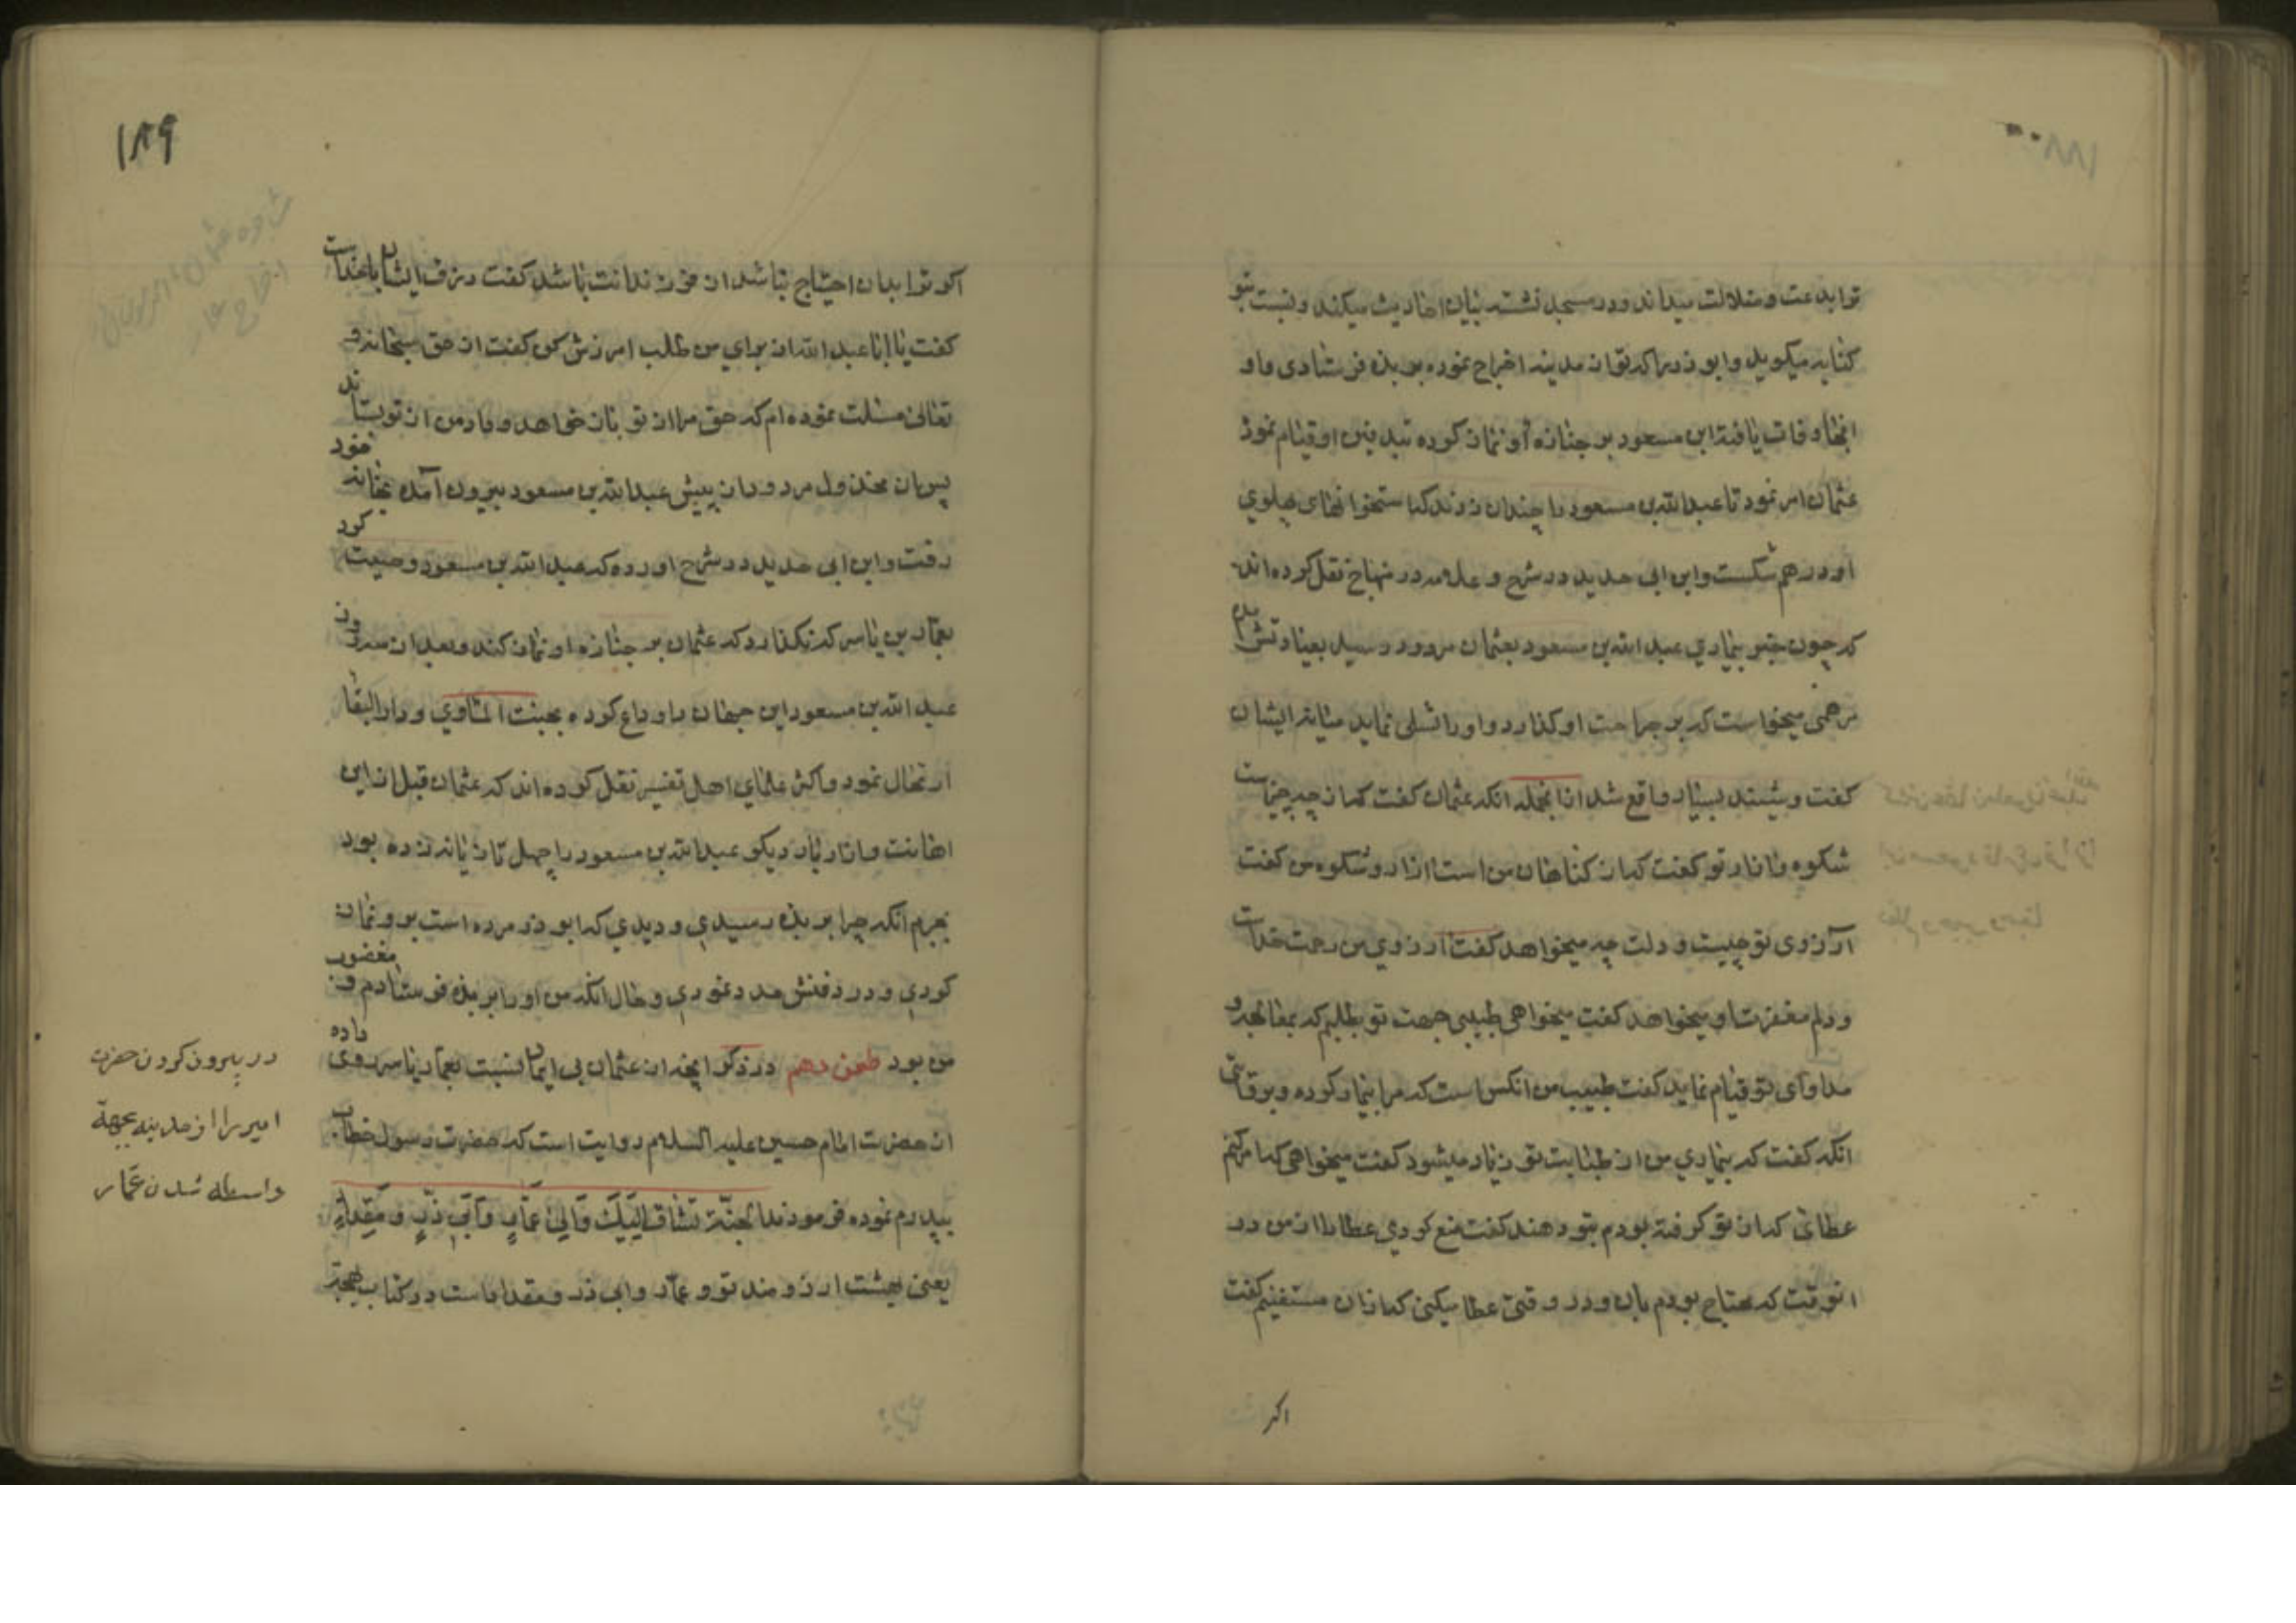 ترا بدعت و ضلالت میداند و در مسجد نشسته بیان احادیث میکند و نسبت بتو
کنایه میگوید و ابوذر را که تو از مدینه اخراج نموده بربذه فرستادی و او
انجا وفات یافته ابن مسعود بر جنازه او نماز کرده بتدفین او قیام نمود
عثمان امر نمود تا عبدالله بن مسعود را چندان زدند که استخوانهای پهلوی
او در هم شکست و ابن ابی حدید در شرح و علامه در منهاج نقل کرده اند
که چون خبر بیماری عبدالله بن مسعود بعثمان مردود رسید بعیادتش
مرهمی میخواست که بر جراحت او گذارد و او را تسلی نماید میانه ایشان
گفت و شنید بسیار واقع شد از انجمله انکه عثمان گفت که از چه چیزست
شکوه و ازار تو گفت که از گناهان من است ازار و شکوه من گفت
آرزوی تو چیست و دلت چه میخواهد گفت آرزوی من رحمت خداست
و دلم مغفرت او میخواهد گفت میخواهی طبیبی جهت تو بطلبم که بمعالجه و
مداوای تو قیام نماید گفت طبیب من انکس است که مرا بیمار کرده و بروایتی
انکه گفت که بیماری من از طبابت تو زیاد میشود گفت میخواهی که امر کنم
عطائی که از تو گرفته بودم بتو دهند گفت منع کردی عطا را از من در
انوقت که محتاج بودم بان و در وقتی عطا میکنی که از ان مستغنیم گفت
اکر
۱۸۹
اکر ترا بدان احتیاج نباشد از فرزندانت باشد گفت رزق ایشان با خداست
گفت یا ابا عبدالله از برای من طلب امرزش کن گفت از حق سبحانه و
تعالی مسئلت نموده ام که حق مرا از تو باز خواهد و داد من از تو بستاند
پس ان مخذول مردود از پیش عبدالله بن مسعود بیرون آمده بخانه خود
رفت و ابن ابی حدید در شرح اورده که عبدالله بن مسعود وصیت کرد
بعمار بن یاسر که نگذارد که عثمان بر جنازه او نماز کند و بعد از سه روز
عبدالله بن مسعود این جهان را وداع کرده بجنت الماوی و دار البقا
ارتحال نمود و اکثر علمای اهل تفسیر نقل کرده اند که عثمان قبل از این
اهانت و ازار بار دیگر عبدالله بن مسعود را چهل تازیانه زده بود
بجرم انکه چرا بربذه رسیدی و دیدی که ابوذر مرده است برو نماز
کردی و در دفنش مدد نمودی و حال انکه من او را بربذه فرستادم و مغضوب
من بود طعن دهم در ذکر انچه از عثمان بی ایمان نسبت بعمار یاسر روی داده
از حضرت امام حسین علیه السلام روایت است که حضرت رسول خطاب
بپدرم نموده فرمودند الجنّة تشتاق الیک و الی عمّار و ابی ذرّ و مقداد
یعنی بهشت ارزومند تو و عمّار و ابی ذر و مقداد است و در کتاب بهجة
در بیرون کردن حضرت
امیر را از مدینه بجهة
واسطه شدن عمّار